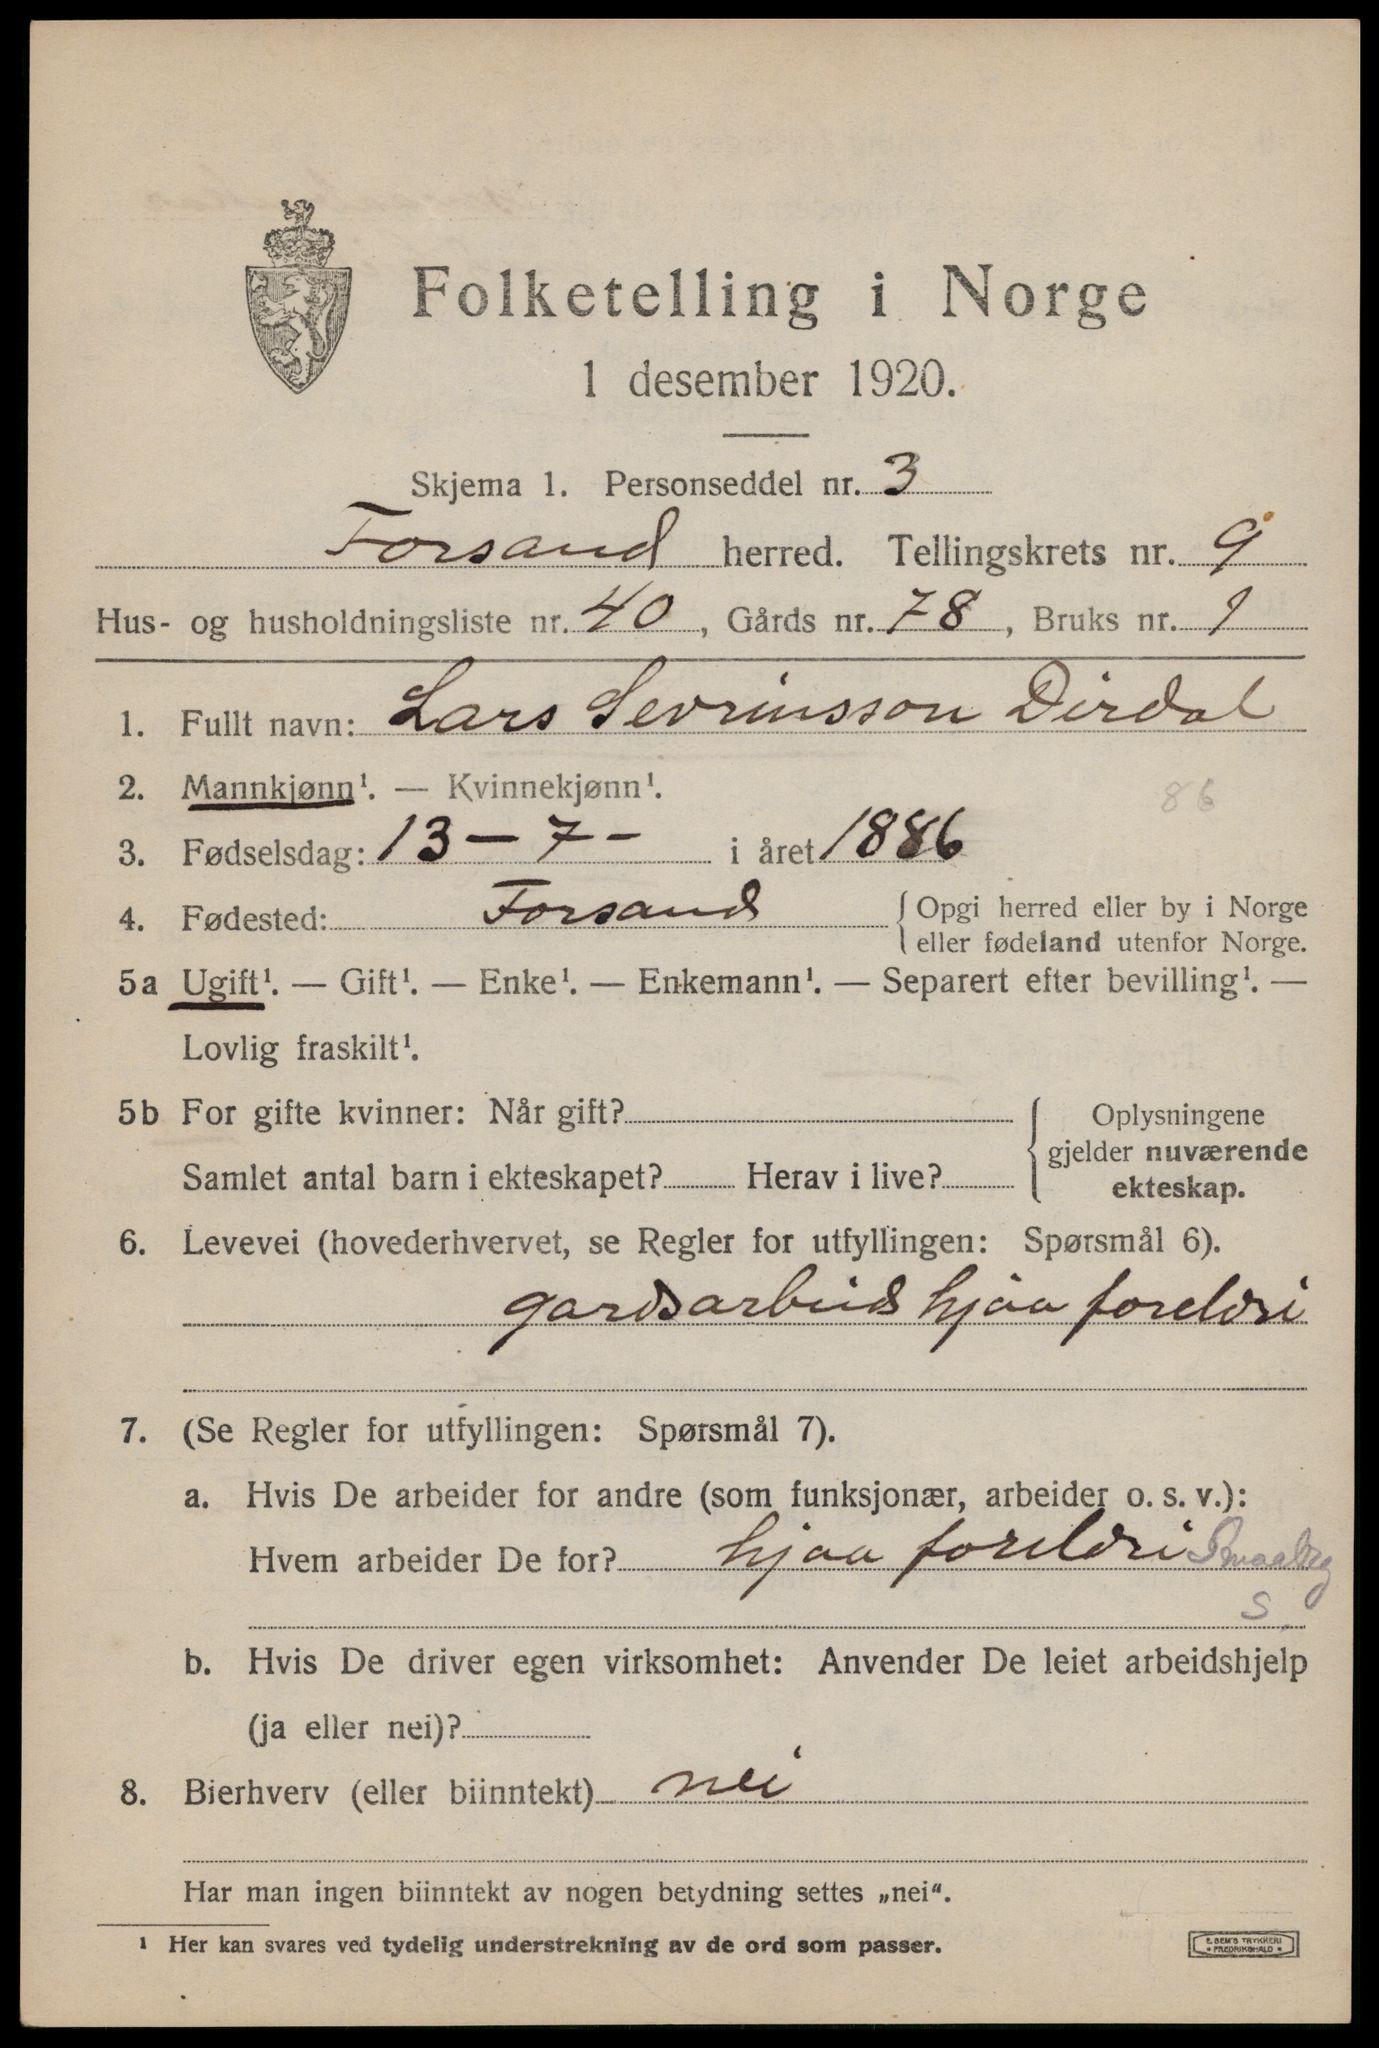 Folketelling i Norge
1 desember 1920.
Skjema 1. Personseddel nr. 3
Forsand herred. Tellingskrets nr. 9
Hus- og husholdningsliste nr. 40, Gårds nr. 78, Bruks nr. 1
1. Fullt navn: Lars Sevrinsson Dirdal
2. Mannkjønn¹. — Kvinnekjønn¹.
86
3. Fødselsdag: 13 – 7 – i året 1886
4. Fødested: Forsand
Opgi herred eller by i Norge
eller fødeland utenfor Norge.
5a Ugift¹. — Gift¹. — Enke¹. — Enkemann¹. — Separert efter bevilling¹. —
Lovlig fraskilt¹.
5b For gifte kvinner: Når gift?
Samlet antal barn i ekteskapet? Herav i live?
Oplysningene
gjelder nuværende
ekteskap.
6. Levevei (hovederhvervet, se Regler for utfyllingen: Spørsmål 6).
gardsarbeid hjaa foreldri
7. (Se Regler for utfyllingen: Spørsmål 7).
a. Hvis De arbeider for andre (som funksjonær, arbeider o. s. v.):
Hvem arbeider De for? hjaa foreldri
S
b. Hvis De driver egen virksomhet: Anvender De leiet arbeidshjelp
(ja eller nei)?
8. Bierhverv (eller biinntekt) nei
Har man ingen biinntekt av nogen betydning settes „nei“.
¹ Her kan svares ved tydelig understrekning av de ord som passer.
E. SEM'S TRYKKERI
• FREDRIKSHALD •